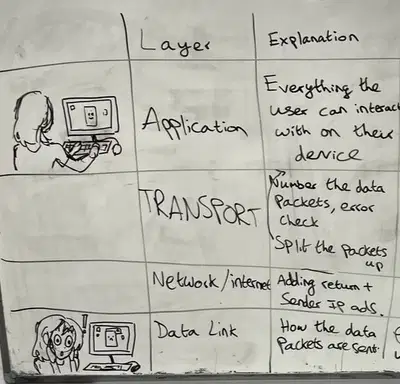 Layer
Explanation
Application
Everything the
user can interact
with on their
device
TRANSPORT
Number the data
Packets, error
check
Split the packets
up
Network/internet
Adding return +
Sender IP ads.
Data Link
How the data
Packets are sent.